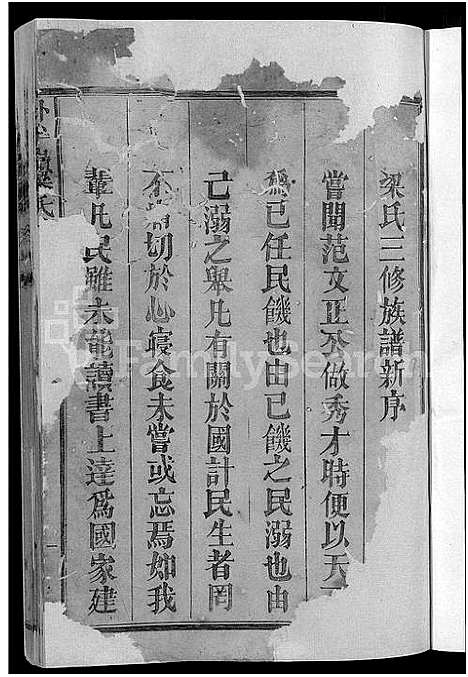 梁氏三修族譜新序
嘗聞范文正公做秀才時便以天
為己任民饑也由己饑之民溺也由
己溺之舉凡有關於國計民生者罔
不 切於心寢食未嘗或忘焉如我
輩凡民雖未能讀書上達為國家建
氏
一
FamilySearch